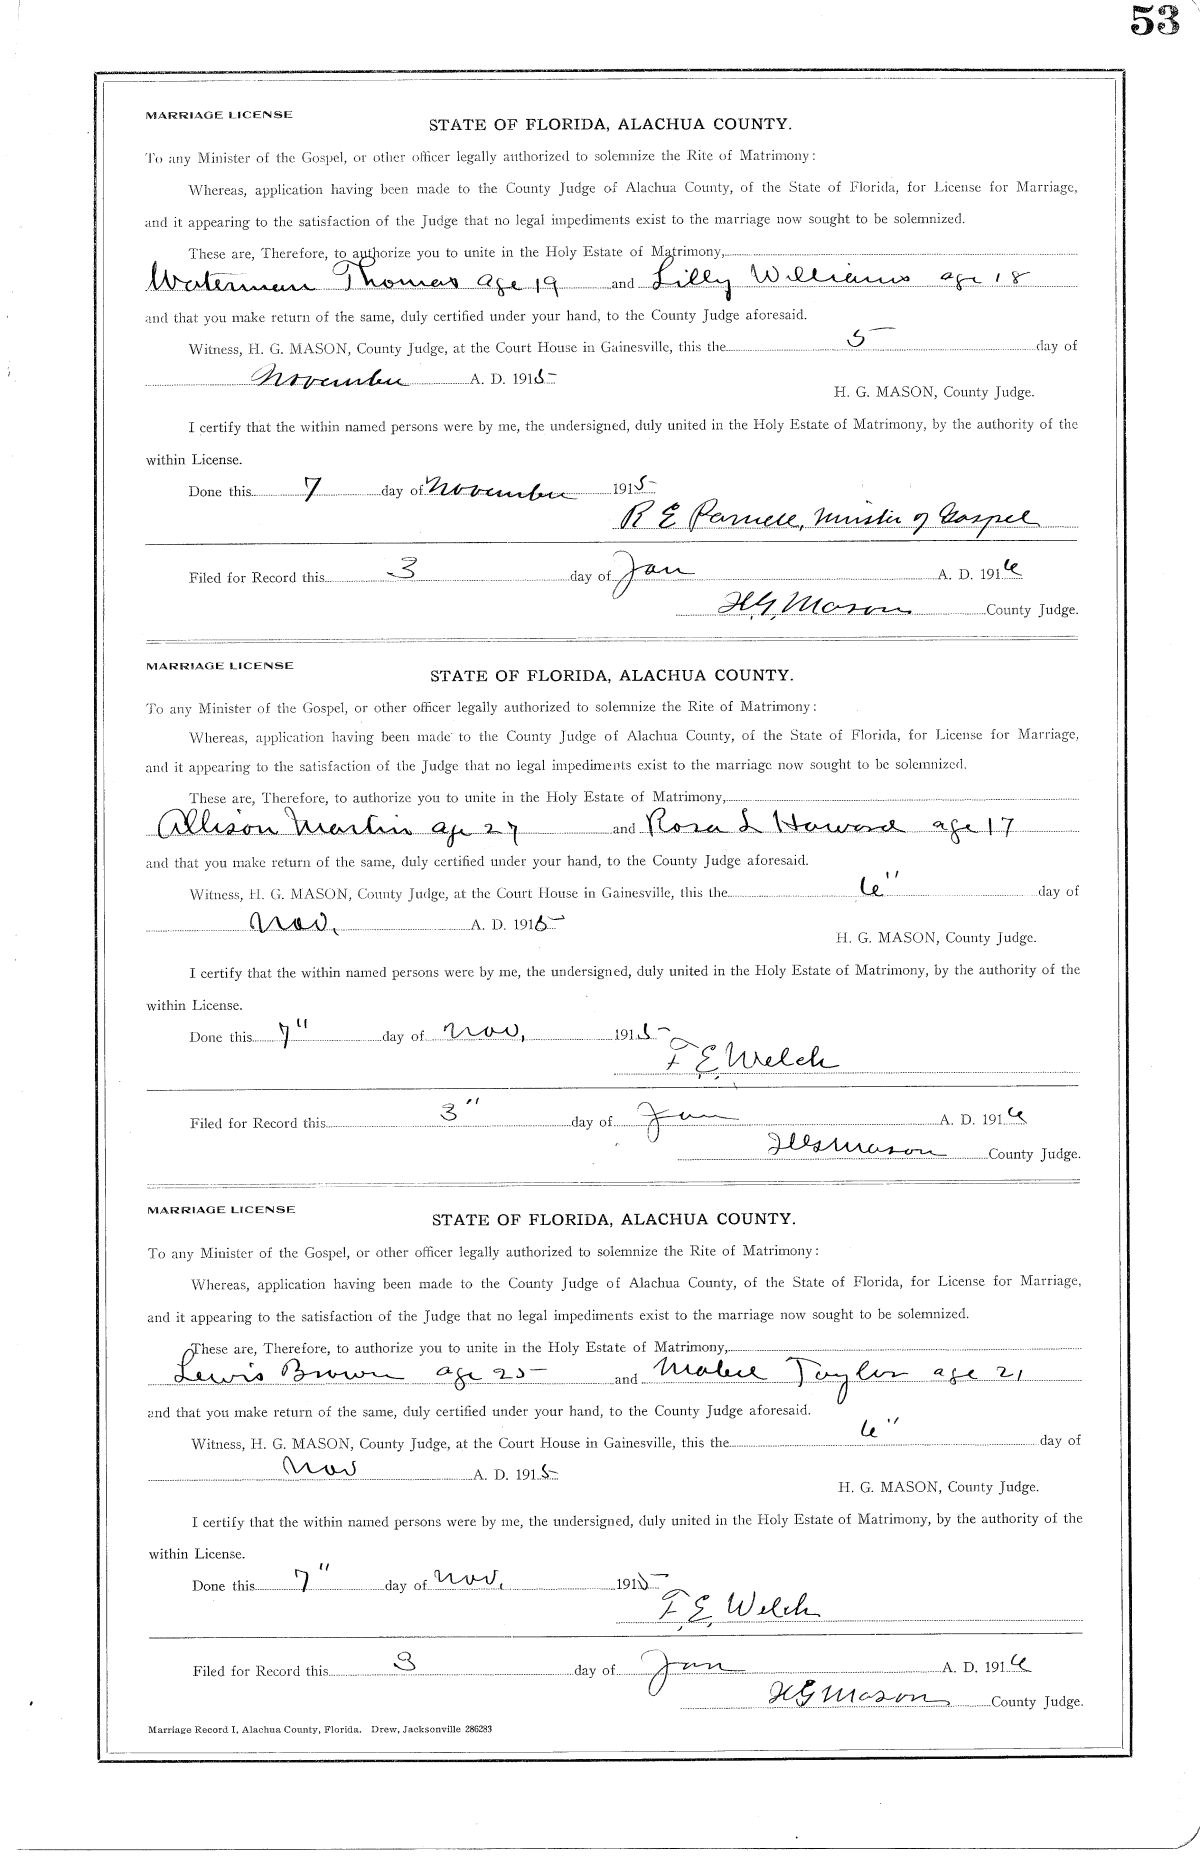 53
MARRIAGE LICENSE
STATE OF FLORIDA, ALACHUA COUNTY.
To any Minister of the Gospel, or other officer legally authorized to solemnize the Rite of Matrimony:
Whereas, application having been made to the County Judge of Alachua County, of the State of Florida, for License for Marriage,
and it appearing to the satisfaction of the Judge that no legal impediments exist to the marriage now sought to be solemnized.
These are, Therefore, to authorize you to unite in the Holy Estate of Matrimony,
Waterman Thomas age 19 and Lilly Williams age 18
and that you make return of the same, duly certified under your hand, to the County Judge aforesaid.
Witness, H. G. MASON, County Judge, at the Court House in Gainesville, this the 5 day of
November A. D. 1915
H. G. MASON, County Judge.
I certify that the within named persons were by me, the undersigned, duly united in the Holy Estate of Matrimony, by the authority of the
within License.
Done this 7 day of November 1915
R E Parnell, Minister of Gospel
Filed for Record this 3 day of Jan A. D. 1916
H.G. Mason County Judge.
MARRIAGE LICENSE
STATE OF FLORIDA, ALACHUA COUNTY.
To any Minister of the Gospel, or other officer legally authorized to solemnize the Rite of Matrimony:
Whereas, application having been made to the County Judge of Alachua County, of the State of Florida, for License for Marriage,
and it appearing to the satisfaction of the Judge that no legal impediments exist to the marriage now sought to be solemnized.
These are, Therefore, to authorize you to unite in the Holy Estate of Matrimony,
Allison Martin age 27 and Rosa L Howard age 17
and that you make return of the same, duly certified under your hand, to the County Judge aforesaid.
Witness, H. G. MASON, County Judge, at the Court House in Gainesville, this the 6" day of
Nov. A. D. 1915
H. G. MASON, County Judge.
I certify that the within named persons were by me, the undersigned, duly united in the Holy Estate of Matrimony, by the authority of the
within License.
Done this 7" day of Nov, 1915
F. E. Welch
Filed for Record this 3" day of Jan A. D. 1916
H G Mason County Judge.
MARRIAGE LICENSE
STATE OF FLORIDA, ALACHUA COUNTY.
To any Minister of the Gospel, or other officer legally authorized to solemnize the Rite of Matrimony:
Whereas, application having been made to the County Judge of Alachua County, of the State of Florida, for License for Marriage,
and it appearing to the satisfaction of the Judge that no legal impediments exist to the marriage now sought to be solemnized.
These are, Therefore, to authorize you to unite in the Holy Estate of Matrimony,
Lewis Brown age 25 and Mabel Taylor age 21
and that you make return of the same, duly certified under your hand, to the County Judge aforesaid.
Witness, H. G. MASON, County Judge, at the Court House in Gainesville, this the 6" day of
Nov A. D. 1915
H. G. MASON, County Judge.
I certify that the within named persons were by me, the undersigned, duly united in the Holy Estate of Matrimony, by the authority of the
within License.
Done this 7" day of Nov, 1915
F. E. Welch
Filed for Record this 3 day of Jan A. D. 1916
H G Mason County Judge.
Marriage Record I, Alachua County, Florida. Drew, Jacksonville 286283